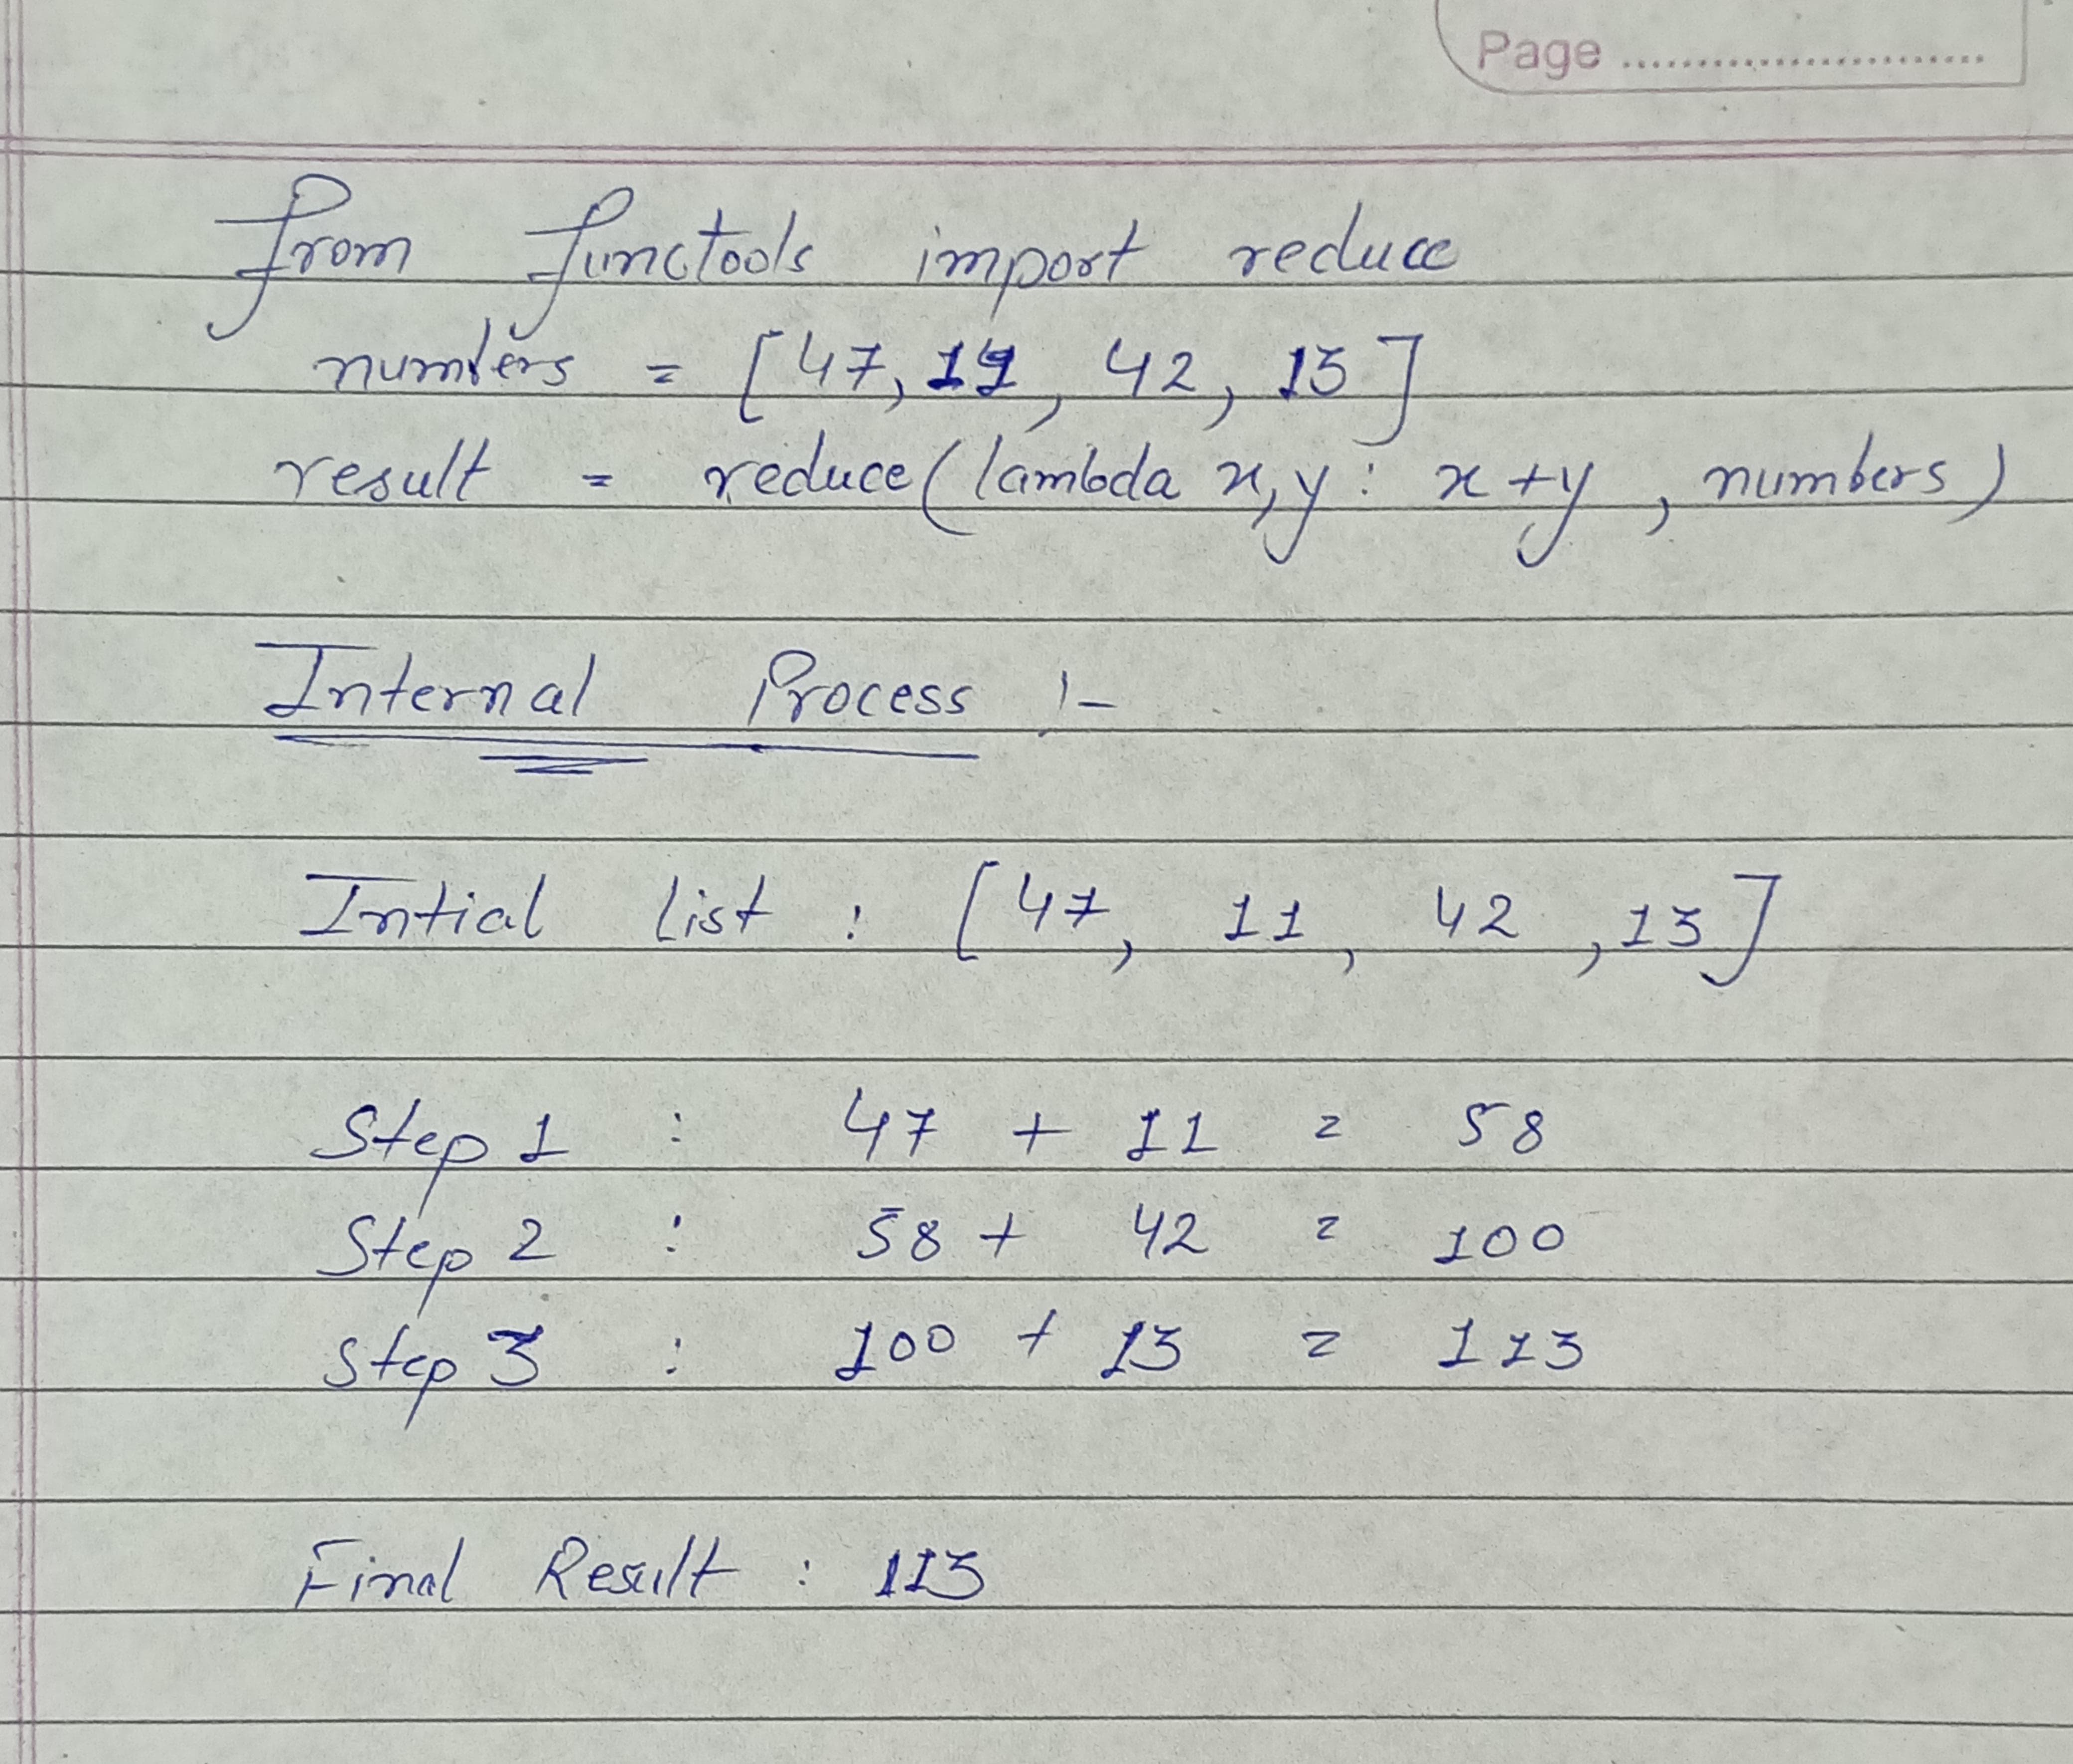 Page ........................
from functools import reduce
numbers = [47, 11, 42, 13]
result = reduce(lambda x,y: x+y, numbers)
Internal Process :-
Intial list : [47, 11, 42, 13]
Step 1 : 47 + 11 = 58
Step 2 : 58 + 42 = 100
Step 3 : 100 + 13 = 113
Final Result : 113